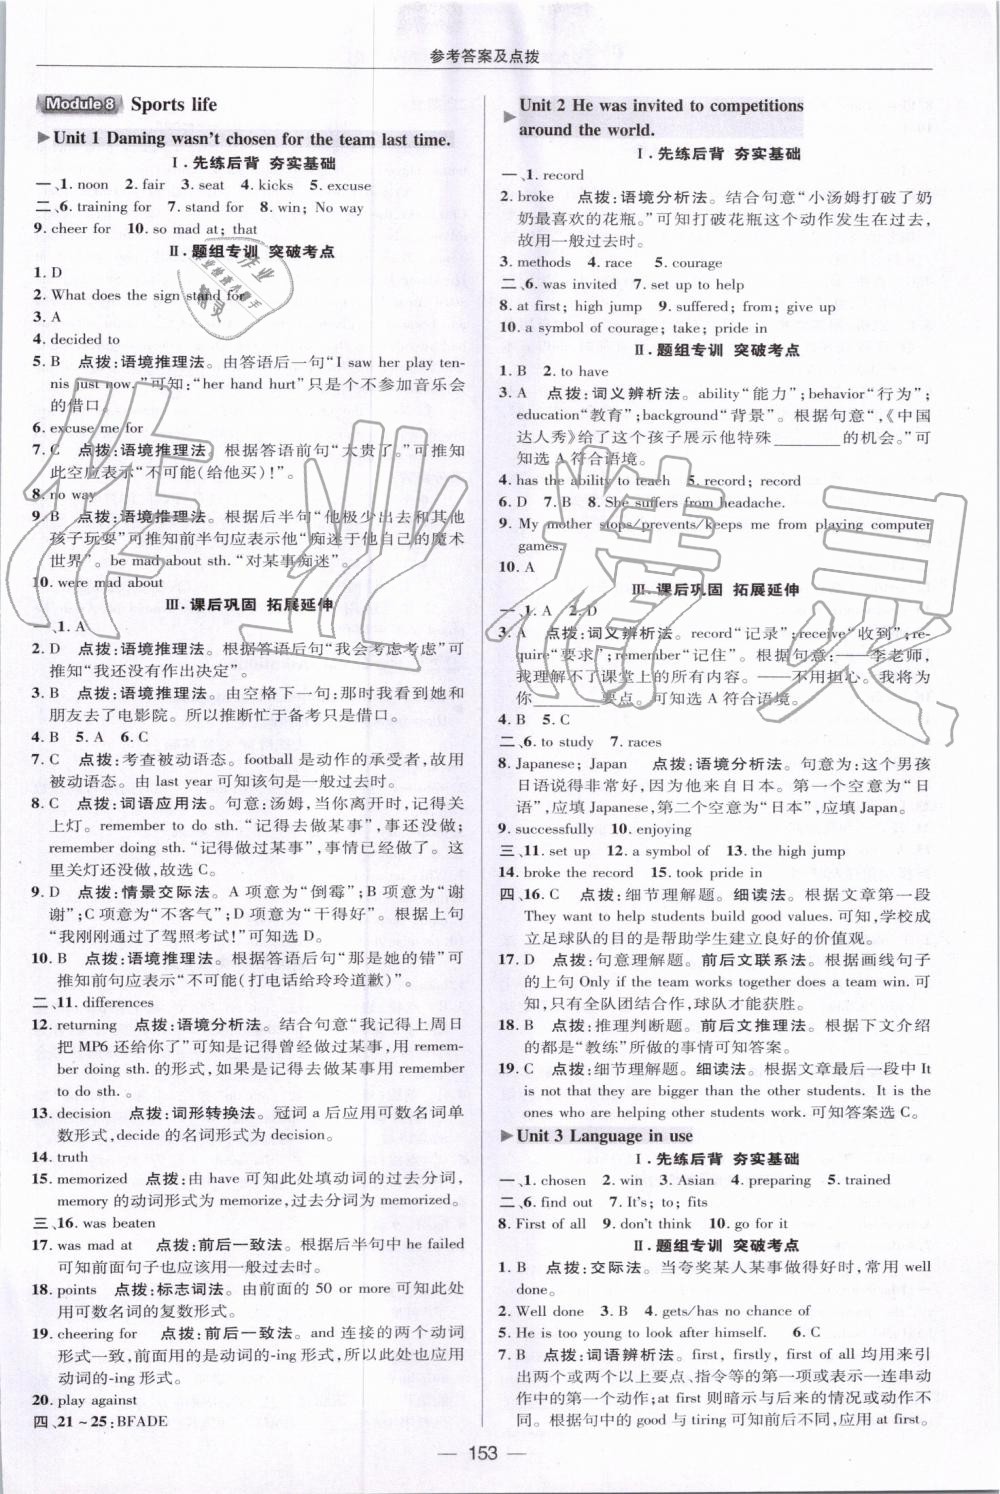 参考答案及点拨
Module 8 Sports life
Unit 1 Daming wasn't chosen for the team last time.
Ⅰ.先练后背 夯实基础
一、1. noon 2. fair 3. seat 4. kicks 5. excuse
二、6. training for 7. stand for 8. win; No way
9. cheer for 10. so mad at; that
Ⅱ.题组专训 突破考点
1. D
2. What does the sign stand for
3. A
4. decided to
5. B 点拨:语境推理法。由答语后一句“I saw her play ten-
nis just now.”可知:“her hand hurt”只是个不参加音乐会
的借口。
6. excuse me for
7. C 点拨:语境推理法。根据答语前句“太贵了。”可推知
此空应表示“不可能(给他买)!”。
8. no way
9. B 点拨:语境推理法。根据后半句“他极少出去和其他
孩子玩耍”可推知前半句应表示他“痴迷于他自己的魔术
世界”。be mad about sth. “对某事痴迷”。
10. were mad about
Ⅲ.课后巩固 拓展延伸
一、1. A
2. D 点拨:语境推理法。根据答语后句“我会考虑考虑”可
推知“我还没有作出决定”。
3. B 点拨:语境推理法。由空格下一句:那时我看到她和
朋友去了电影院。所以推断忙于备考只是借口。
4. B 5. A 6. C
7. C 点拨:考查被动语态。football 是动作的承受者,故用
被动语态。由 last year 可知该句是一般过去时。
8. C 点拨:词语应用法。句意:汤姆,当你离开时,记得关
上灯。remember to do sth. “记得去做某事”,事还没做;
remember doing sth. “记得做过某事”,事情已经做了。这
里关灯还没做,故选 C。
9. D 点拨:情景交际法。A 项意为“倒霉”;B 项意为“谢
谢”;C 项意为“不客气”;D 项意为“干得好”。根据上句
“我刚刚通过了驾照考试!”可知选 D。
10. B 点拨:语境推理法。根据答语后句“那是她的错”可
推知前句应表示“不可能(打电话给玲玲道歉)”。
二、11. differences
12. returning 点拨:语境分析法。结合句意“我记得上周日
把 MP6 还给你了”可知是记得曾经做过某事,用 remem-
ber doing sth. 的形式,如果是记得去做某事用 remember
to do sth. 。
13. decision 点拨:词形转换法。冠词 a 后应用可数名词单
数形式,decide 的名词形式为 decision。
14. truth
15. memorized 点拨:由 have 可知此处填动词的过去分词,
memory 的动词形式为 memorize,过去分词为 memorized。
三、16. was beaten
17. was mad at 点拨:前后一致法。根据后半句中 he failed
可知前面句子也应该用一般过去时。
18. points 点拨:标志词法。由前面的 50 or more 可知此处
用可数名词的复数形式。
19. cheering for 点拨:前后一致法。and 连接的两个动词
形式一致,前面用的是动词的-ing 形式,所以此处也应用
动词的-ing 形式。
20. play against
四、21～25:BFADE
Unit 2 He was invited to competitions
around the world.
Ⅰ.先练后背 夯实基础
一、1. record
2. broke 点拨:语境分析法。结合句意“小汤姆打破了奶
奶最喜欢的花瓶。”可知打破花瓶这个动作发生在过去,
故用一般过去时。
3. methods 4. race 5. courage
二、6. was invited 7. set up to help
8. at first; high jump 9. suffered; from; give up
10. a symbol of courage; take; pride in
Ⅱ.题组专训 突破考点
1. B 2. to have
3. A 点拨:词义辨析法。ability“能力”;behavior“行为”;
education“教育”;background“背景”。根据句意“,《中国
达人秀》给了这个孩子展示他特殊________的机会。”可
知选 A 符合语境。
4. has the ability to teach 5. record; record
6. D 7. B 8. She suffers from headache.
9. My mother stops/prevents/keeps me from playing computer
games.
10. A
Ⅲ.课后巩固 拓展延伸
一、1. A 2. D
3. A 点拨:词义辨析法。record“记录”;receive“收到”;re-
quire“要求”;remember“记住”。根据句意:——李老师,
我理解不了课堂上的所有内容。——不用担心。我将为
你________要点。可知选 A 符合语境。
4. B 5. C
二、6. to study 7. races
8. Japanese; Japan 点拨:语境分析法。句意为:这个男孩
日语说得非常好,因为他来自日本。第一个空意为“日
语”,应填 Japanese,第二个空意为“日本”,应填 Japan。
9. successfully 10. enjoying
三、11. set up 12. a symbol of 13. the high jump
14. broke the record 15. took pride in
四、16. C 点拨:细节理解题。细读法。根据文章第一段
They want to help students build good values. 可知,学校成
立足球队的目的是帮助学生建立良好的价值观。
17. D 点拨:句意理解题。前后文联系法。根据画线句子
的上句 Only if the team works together does a team win. 可
知,只有全队团结合作,球队才能获胜。
18. B 点拨:推理判断题。前后文推理法。根据下文介绍
的都是“教练”所做的事情可知答案。
19. C 点拨:细节理解题。细读法。根据文章最后一段中 It
is not that they are bigger than the other students. It is the
ones who are helping other students work. 可知答案选 C。
Unit 3 Language in use
Ⅰ.先练后背 夯实基础
一、1. chosen 2. win 3. Asian 4. preparing 5. trained
二、6. find out 7. It's; to; fits
8. First of all 9. don't think 10. go for it
Ⅱ.题组专训 突破考点
1. B 点拨:交际法。当夸奖某人某事做得好时,常用 well
done。
2. Well done 3. B 4. gets/has no chance of
5. He is too young to look after himself. 6. C
7. B 点拨:词语辨析法。first, firstly, first of all 均用来引
出两个或两个以上要点、指令等的第一项或表示一连串动
作中的第一个动作;at first 则暗示与后来的情况或动作不
同。根据句中的 good 与 tiring 可知前后不同,应用 at first。
— 153 —